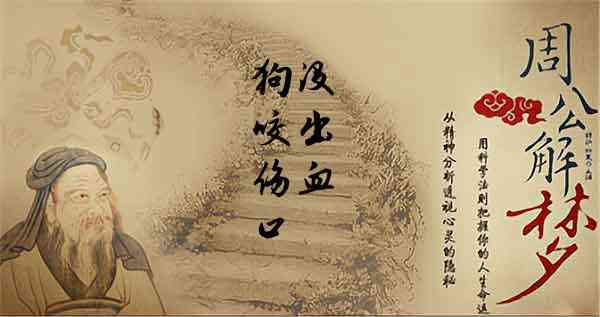 周公解梦
用科学法则把握你的人生命运
从精神分析透视心灵的隐秘
没出血
狗咬伤口